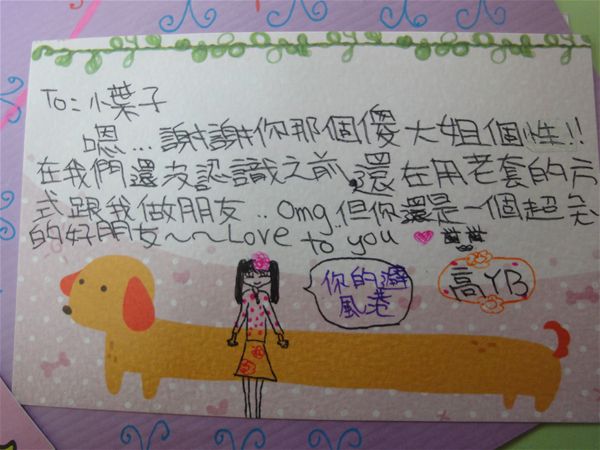 To: 小葉子
嗯... 謝謝你那個傻大姐個性!!
在我們還沒認識之前,還在用老套的方
式跟我做朋友..omg..但你還是一個超炫
的好朋友~~Love to you
你的避
風港
高YB